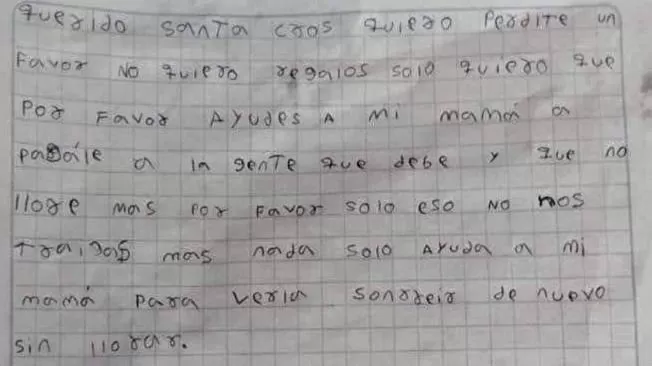 querido santa cros quiero perdite un
Favor no quiero regalos solo quiero que
Por Favor Ayudes A mi mamá a
pagále a la gente que debe y que no
llore mas por Favor solo eso no nos
traigas mas nada solo Ayuda a mi
mamá para verla sonrreir de nuevo
sin llorar.